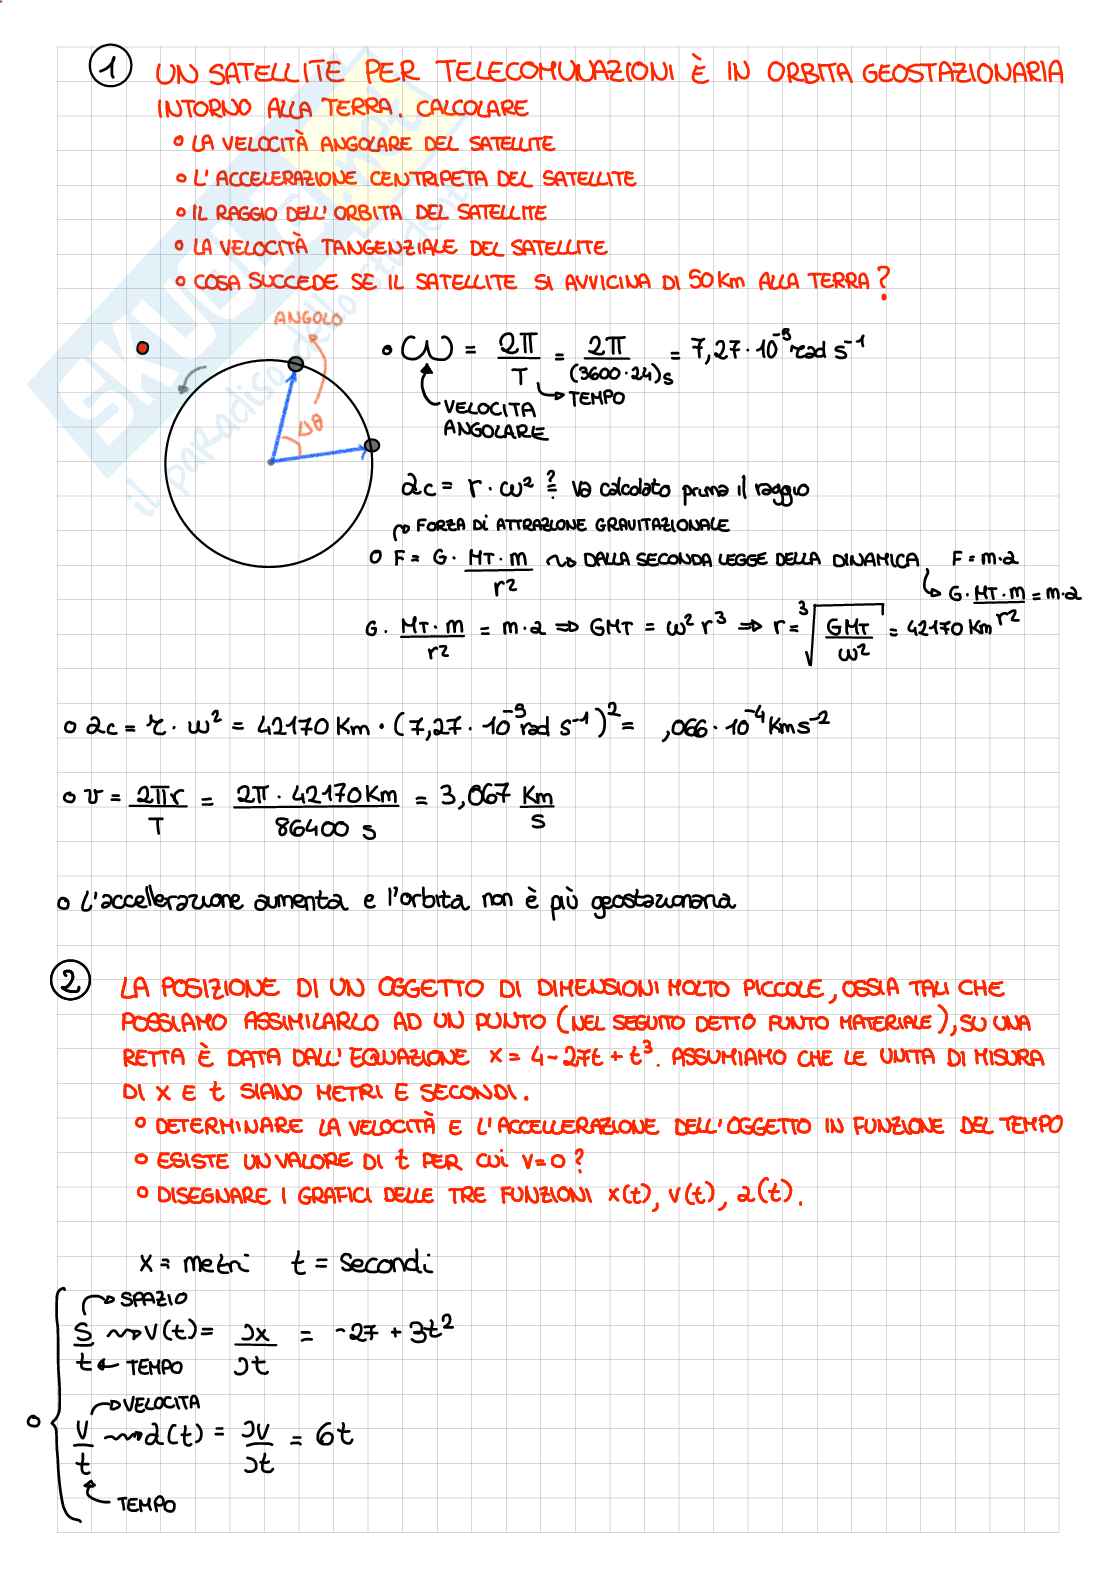 1 UN SATELLITE PER TELECOMUNAZIONI È IN ORBITA GEOSTAZIONARIA
INTORNO ALLA TERRA. CALCOLARE
° LA VELOCITÀ ANGOLARE DEL SATELLITE
° L'ACCELERAZIONE CENTRIPETA DEL SATELLITE
° IL RAGGIO DELL'ORBITA DEL SATELLITE
° LA VELOCITÀ TANGENZIALE DEL SATELLITE
° COSA SUCCEDE SE IL SATELLITE SI AVVICINA DI 50 Km ALLA TERRA?
ANGOLO
Δθ
° ω = 2π/T = 2π/(3600·24)s = 7,27·10⁻⁵ rad s⁻¹
TEMPO
VELOCITA
ANGOLARE
ac = r·ω² ?= va calcolato prima il raggio
FORZA DI ATTRAZIONE GRAVITAZIONALE
° F = G· MT·m/r² ⇝ DALLA SECONDA LEGGE DELLA DINAMICA F = m·a
G·MT·m/r² = m·a
G· MT·m/r² = m·a ⇒ GMT = ω² r³ ⇒ r = ³√(GMT/ω²) = 42170 Km
° ac = r·ω² = 42170 Km·(7,27·10⁻⁵ rad s⁻¹)² = ,066·10⁻⁴ Km s⁻²
° v = 2πr/T = 2π·42170 Km/86400 s = 3,067 Km/s
° L'accellerazione aumenta e l'orbita non è più geostazionaria
2 LA POSIZIONE DI UN OGGETTO DI DIMENSIONI MOLTO PICCOLE, OSSIA TALI CHE
POSSIAMO ASSIMILARLO AD UN PUNTO (NEL SEGUITO DETTO PUNTO MATERIALE), SU UNA
RETTA È DATA DALL'EQUAZIONE x = 4-27t + t³. ASSUMIAMO CHE LE UNITA DI MISURA
DI x E t SIANO METRI E SECONDI.
° DETERMINARE LA VELOCITÀ E L'ACCELLERAZIONE DELL'OGGETTO IN FUNZIONE DEL TEMPO
° ESISTE UN VALORE DI t PER CUI V=0?
° DISEGNARE I GRAFICI DELLE TRE FUNZIONI x(t), v(t), a(t).
x = metri t = secondi
SPAZIO
S/t ⇝ V(t) = ∂x/∂t = -27 + 3t²
TEMPO
VELOCITA
° V/t ⇝ a(t) = ∂V/∂t = 6t
TEMPO
SKUOLA.net
il paradiso dello studente